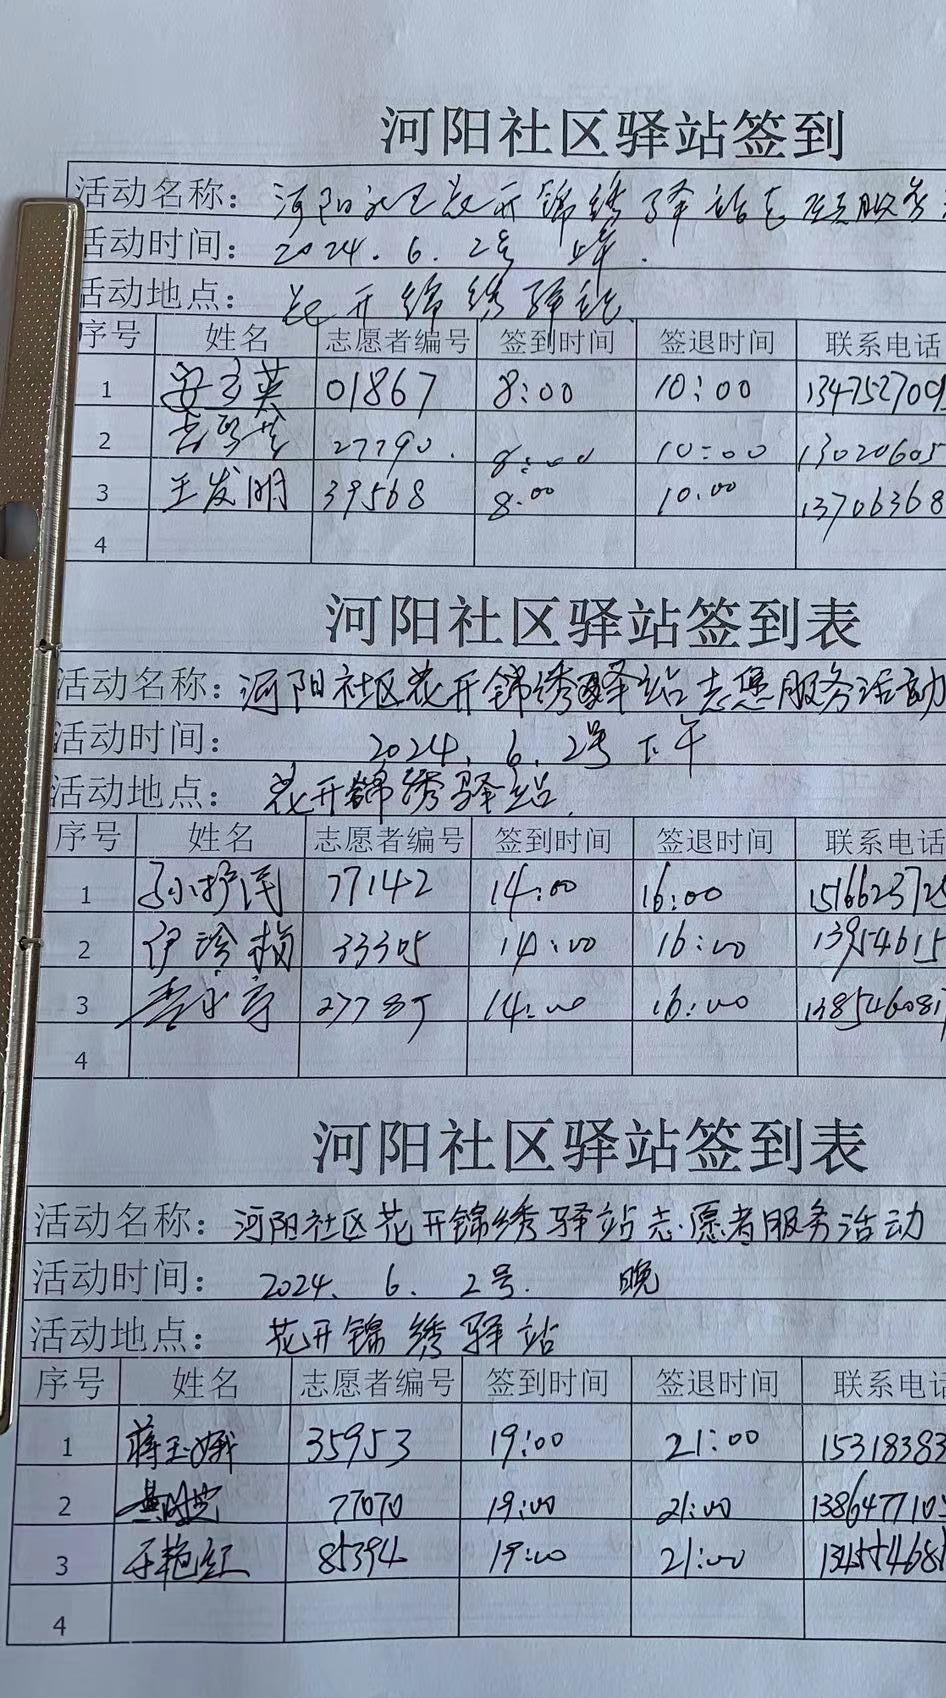 河阳社区驿站签到
活动名称：河阳社区花开锦绣驿站志愿服务
活动时间：2024.6.2号 上午.
活动地点：花开锦绣驿站
序号 姓名 志愿者编号 签到时间 签退时间 联系电话
1 安玉英 01867 8:00 10:00 134752700
2 27790. 8:00 10:00 13020605
3 王发明 39568 8:00 10:00 13706368
4
河阳社区驿站签到表
活动名称：河阳社区花开锦绣驿站志愿服务活动
活动时间：2024.6.2号 下午
活动地点：花开锦绣驿站.
序号 姓名 志愿者编号 签到时间 签退时间 联系电话
1 孙护民 77142 14:00 16:00 151662372
2 伊珍梅 33305 14:00 16:00 13954615
3 14:00 16:00 138546081
4
河阳社区驿站签到表
活动名称：河阳社区花开锦绣驿站志愿者服务活动
活动时间：2024.6.2号. 晚
活动地点：花开锦绣驿站
序号 姓名 志愿者编号 签到时间 签退时间 联系电话
1 蒋玉娥 35953 19:00 21:00 15318383
2 77070 19:00 21:00 138647710
3 于艳红 85394 19:00 21:00 134554681
4